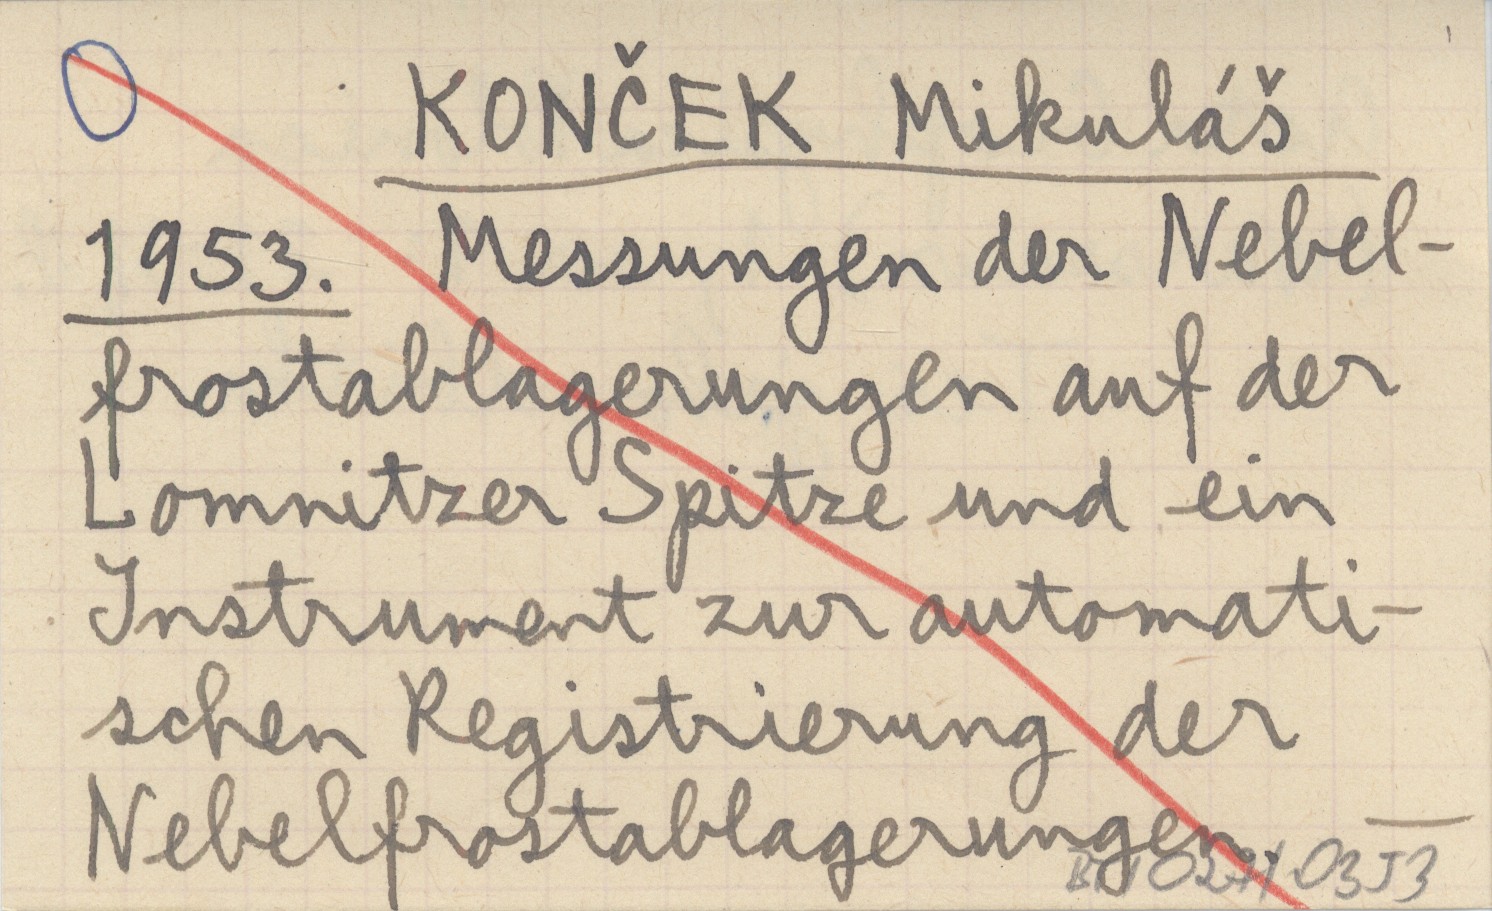 KONČEK Mikuláš
1953. Messungen der Nebel-
frostablagerungen auf der
Lomnitzer Spitze und ein
Instrument zur automati-
schen Registrierung der
Nebelfrostablagerungen. —